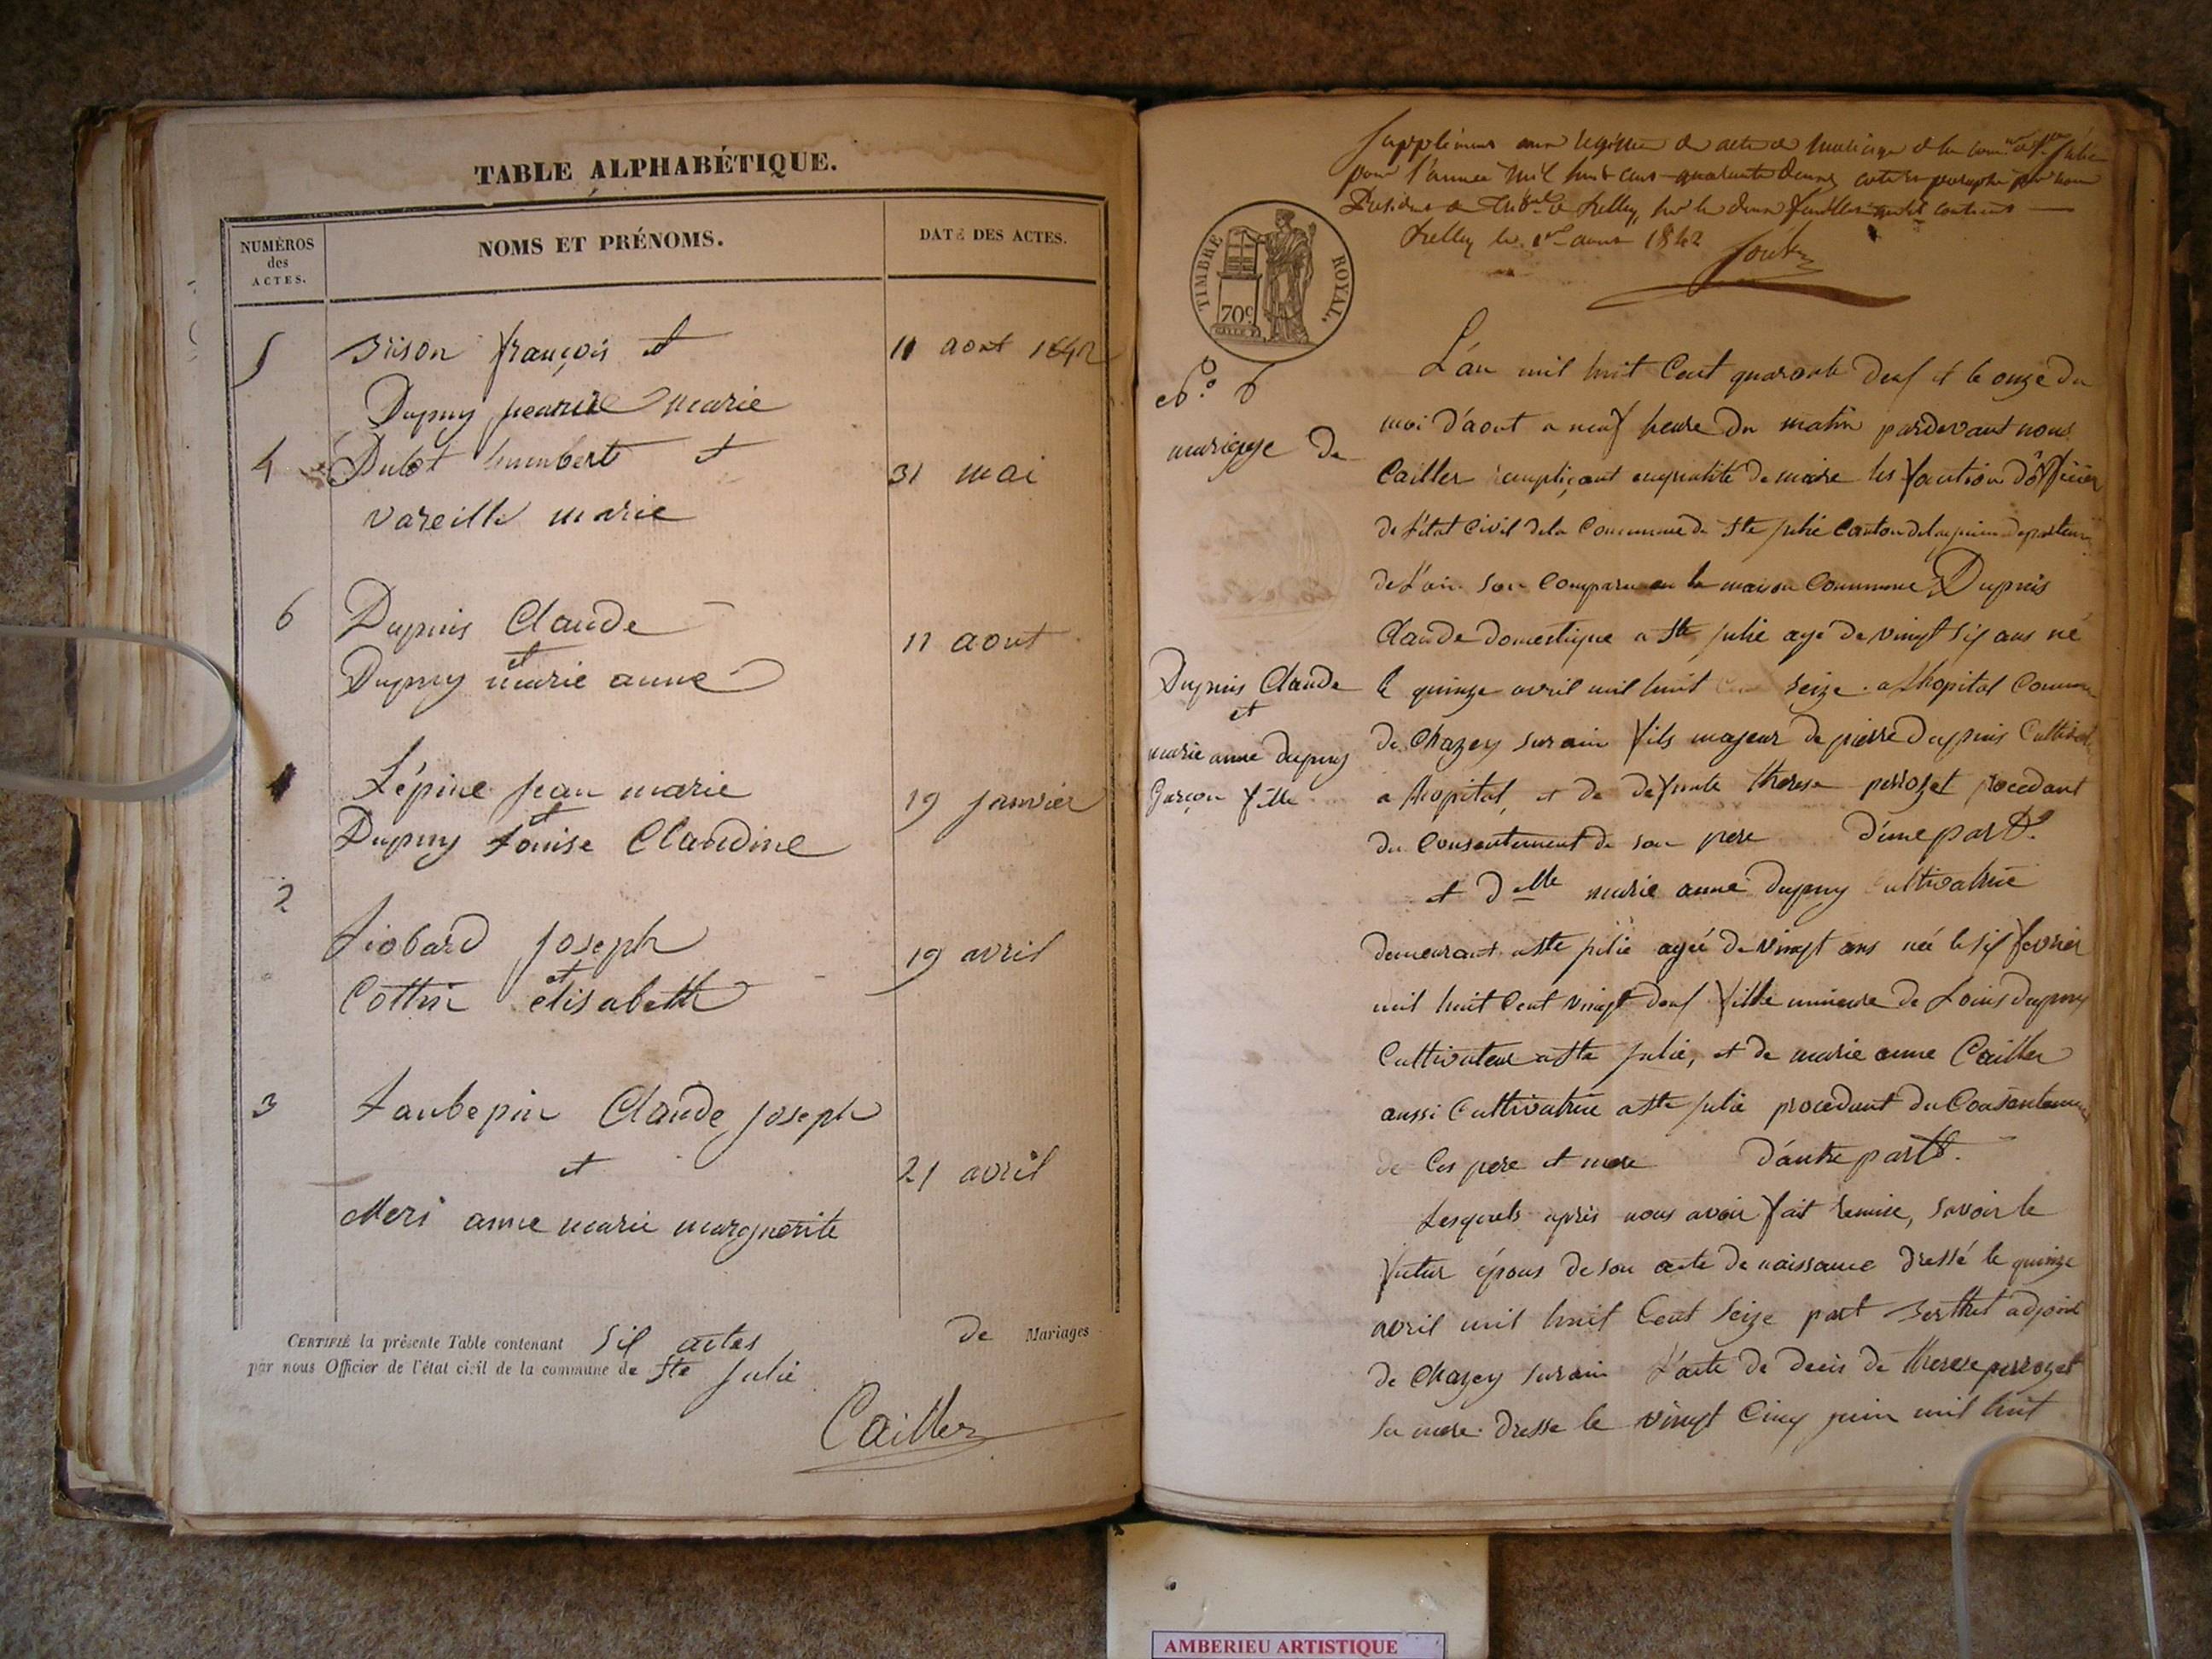 TABLE ALPHABÉTIQUE.
NUMÉROS
des
ACTES.
NOMS ET PRÉNOMS.
DATE DES ACTES.
5 Brison françois et 11 aout 1842
Dupuy jeanne marie
4 Dubot humbert et 31 mai
vareille marie
6 Dupuis Claude
et 11 aout
Dupuy marie anne
1 Lépine jean marie
et 19 janvier
Dupuy Louise Claudine
2
Liobard joseph
et 19 avril
Cottin élisabeth
3 Laubepin Claude joseph
et 21 avril
Meri anne marie marguerite
CERTIFIÉ la présente Table contenant six actes de Mariages
par nous Officier de l'état civil de la commune de Ste julie
Cailler
Supplément aux registres de actes de mariage de la comne de Ste julie
pour l'année mil huit cent quarante deux coté et paraphé par nous
Président du tribunal de Belley, sur les deux feuilles qu'il contient
Belley le 1er aout 1842
TIMBRE ROYAL.
70c
No. 6
mariage de
Dupuis Claude
et
marie anne dupuy
Garçon fille
L'an mil huit Cent quarante deux et le onze du
moi d'aout a neuf heure du matin pardevant nous
Cailler rempliçant enqualité de maire les fonction d'officier
de l'état Civil dela Commune de Ste julie Canton delagnieu departem
de L'ain son Comparu en la maison Commune, Dupuis
Claude domestique a Ste julie agé de vingt six ans né
le quinze avril mil huit Cent seize a lhopital Commu
de Chazey surain fils majeur de pierre dupuis Cultivat
a lhopital, et de defunte therese perrozet procedant
du Consentement de son pere d'une part.
et dlle marie anne dupuy Cultivatrice
demeurant aste julie ageé de vingt ans neé le six fevrier
mil huit Cent vingt deux fille mineure de Louis dupuy
Cultivateur aste julie, et de marie anne Cailler
aussi Cultivatrice aste julie procedant du Consentemen
de Ces pere et mere d'autre part.
Lesquels après nous avoir fait remise, savoir le
futur épous de son acte de naissance dressé le quinze
avril mil huit Cent seize part Berthet adjoint
de Chazey surain L'acte de decès de therese perrozet
sa mere dresse le vingt Cinq juin mil huit
AMBERIEU ARTISTIQUE